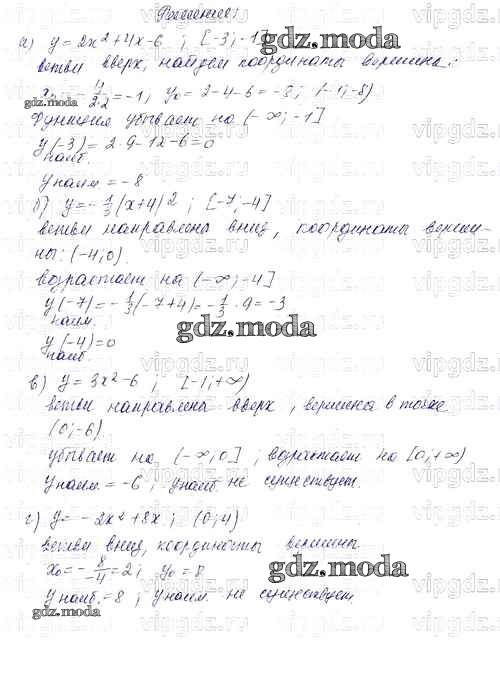 Решение:
а) y = 2x² + 4x - 6 ; [-3; -1]
ветви вверх, найдем координаты вершины:
x₀ = - 4/2·2 = -1, y₀ = 2-4-6 = -8; (-1;-8)
Функция убывает на (-∞; -1]
y(-3) = 2·9 - 12 - 6 = 0
наиб.
y наим. = -8
б) y = - 1/3 (x+4)² ; [-7; -4]
ветви направлены вниз, координаты верши-
ны: (-4; 0).
возрастает на (-∞; -4]
y(-7) = - 1/3 (-7+4) = - 1/3 · 9 = -3
наим.
y(-4) = 0
наиб.
в) y = 3x² - 6 ; [-1; +∞)
ветви направлены вверх, вершина в точке
(0; -6)
убывает на (-∞; 0] ; возрастает на [0; +∞)
y наим. = -6 ; y наиб. не существует.
г) y = - 2x² + 8x ; (0; 4)
ветви вниз, координаты вершины
x₀ = - 8/-4 = 2; y₀ = 8
y наиб. = 8 ; y наим. не существует.
gdz.moda
gdz.moda
gdz.moda
gdz.moda
gdz.moda
vipgdz.com